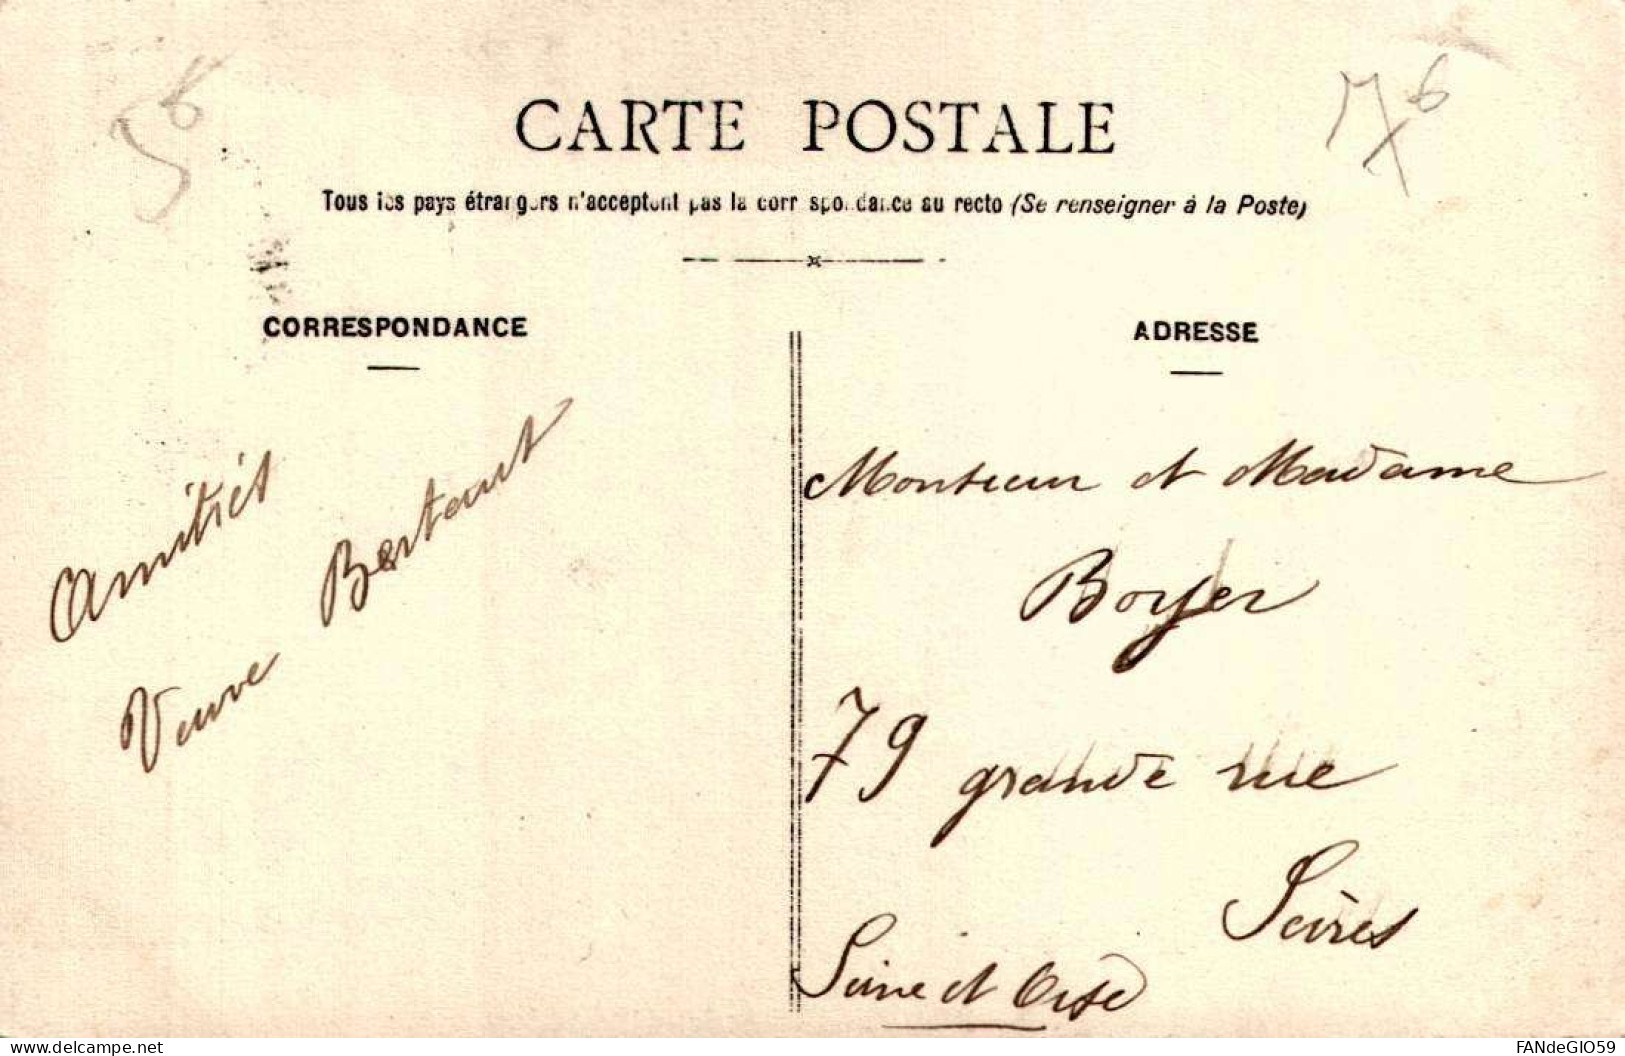 56
76
CARTE POSTALE
Tous les pays étrangers n'acceptent pas la correspondance au recto (Se renseigner à la Poste)
CORRESPONDANCE
ADRESSE
Amitiés
Veuve Bertaut
Monsieur et Madame
Boyer
79 grande rue
Sèvres
Seine et Oise
www.delcampe.net
FANdeGIO59